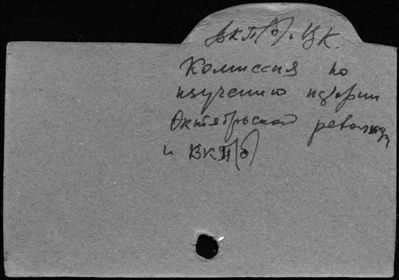 ВКП(б). ЦК.
Комиссия по
изучению истории
Октябрьской революции
и ВКП(б)